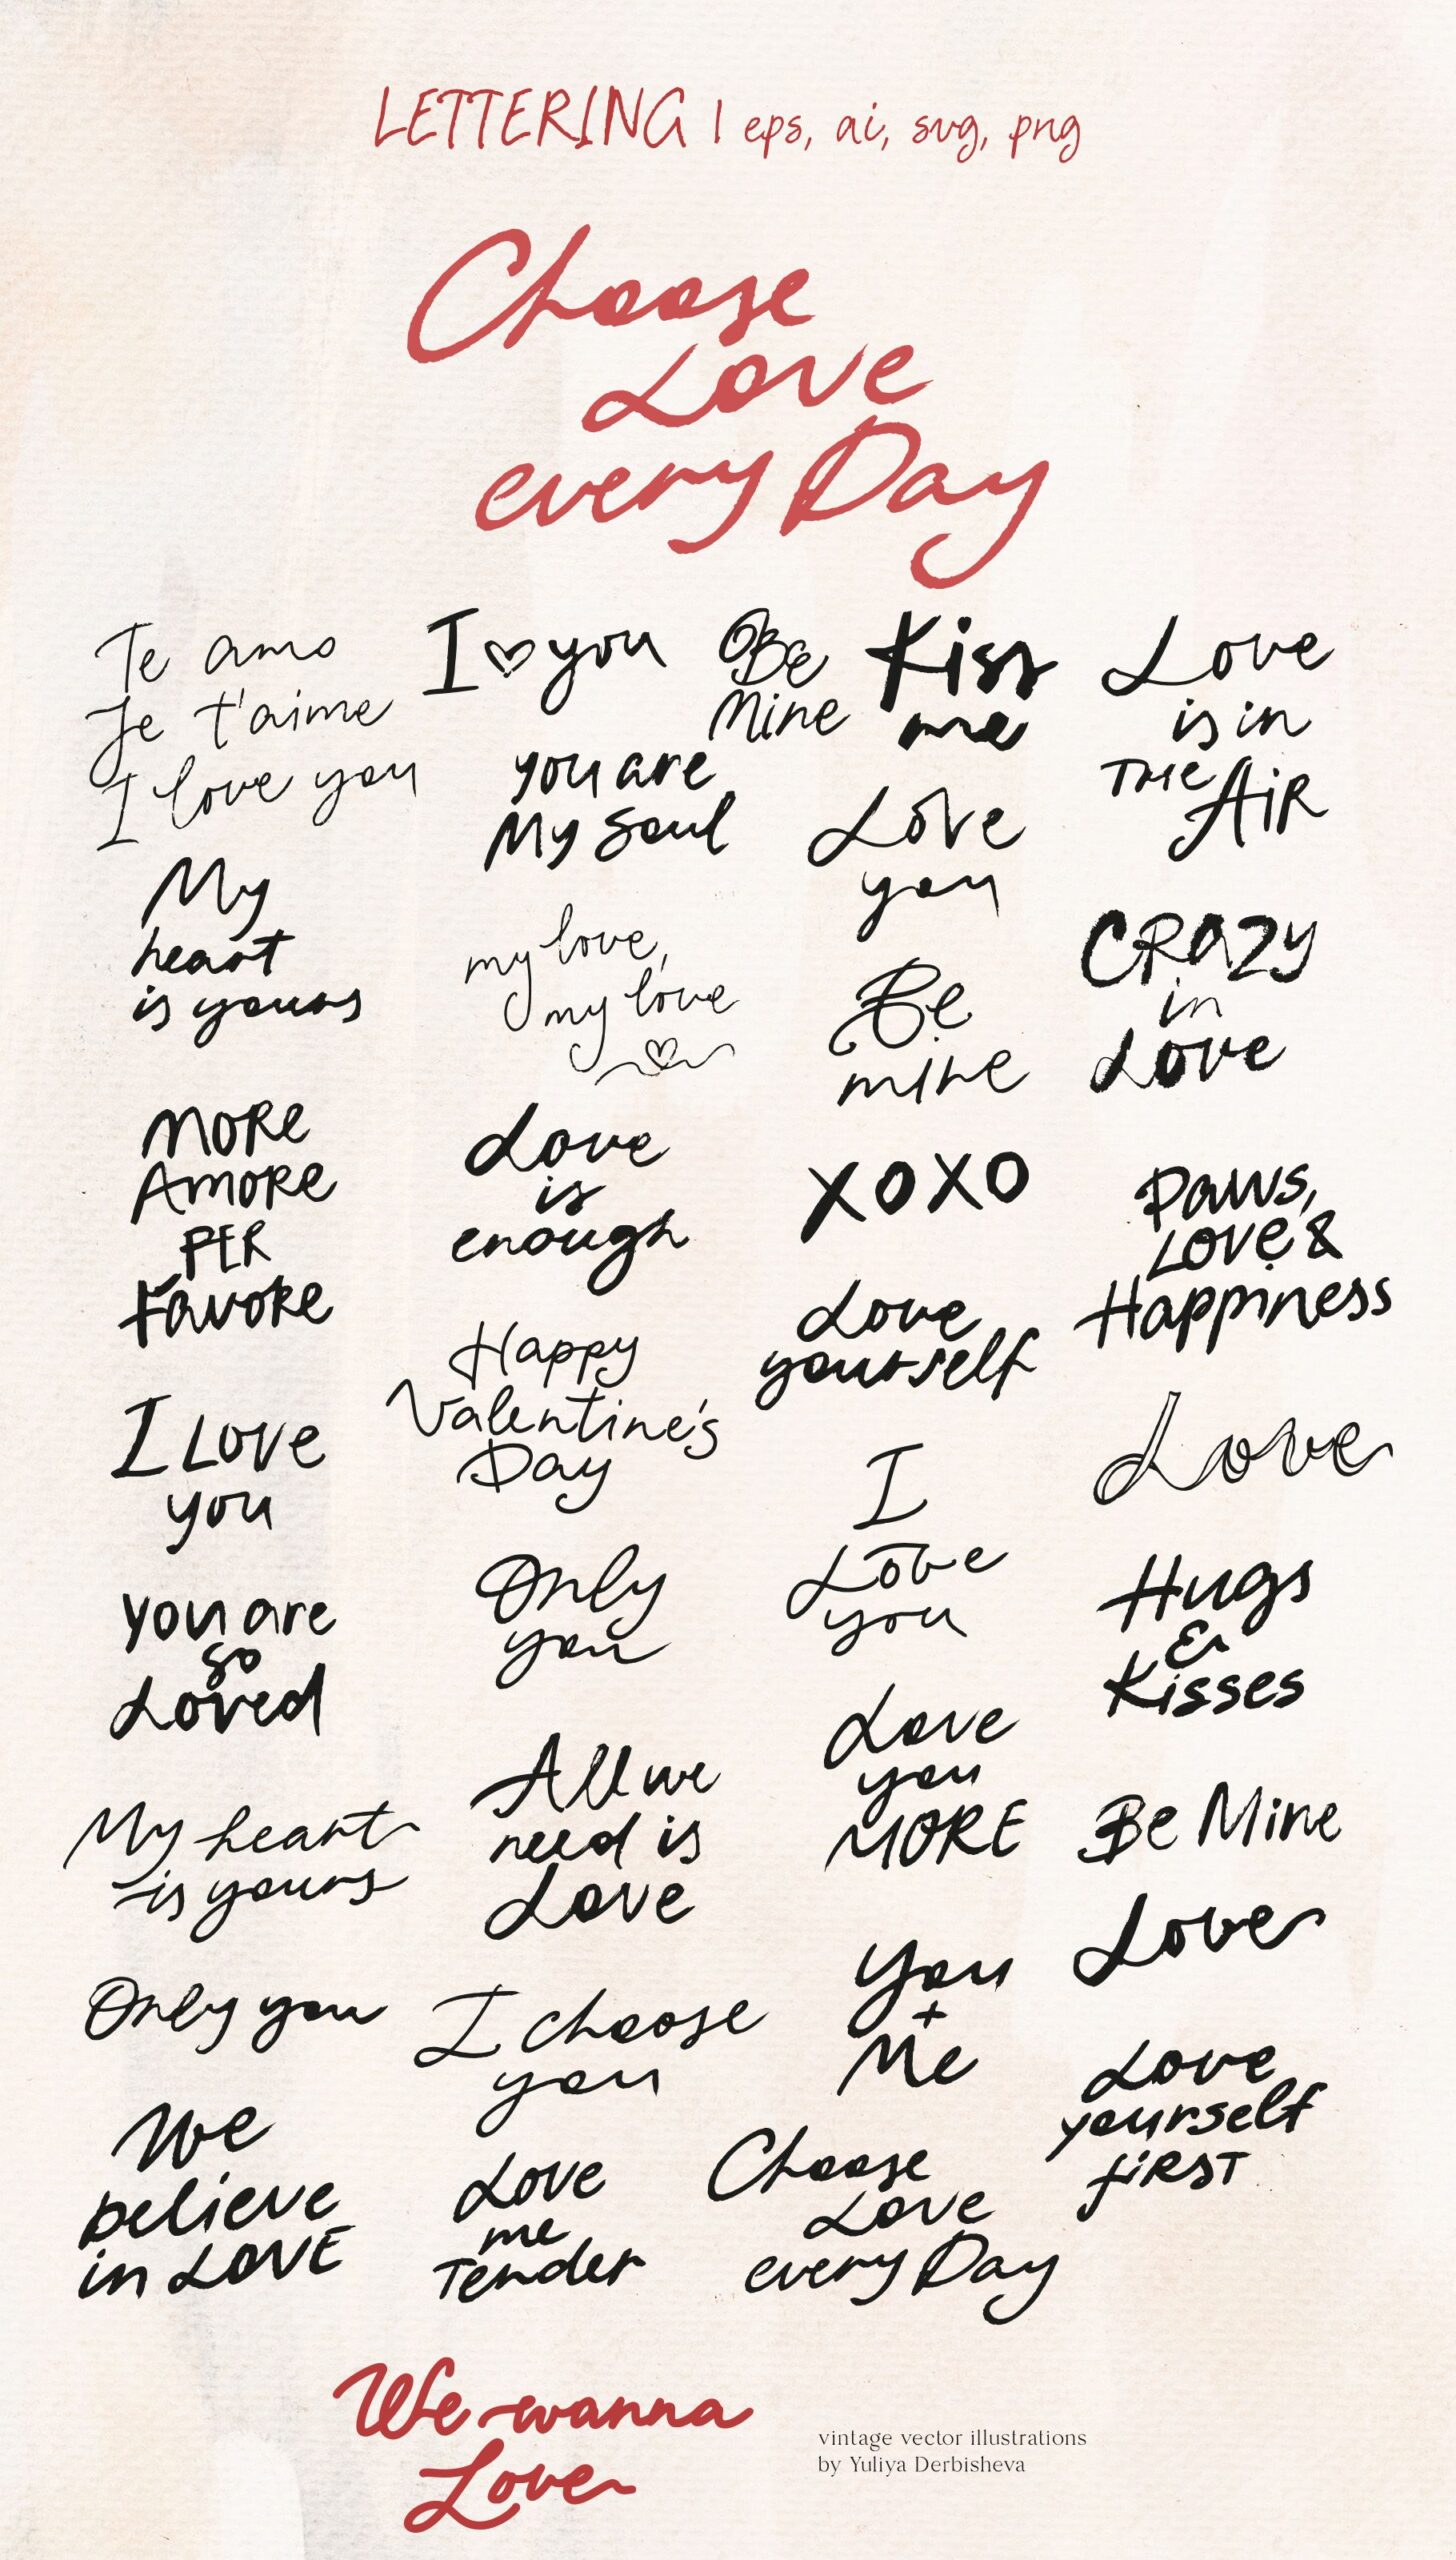 LETTERING | eps, ai, svg, png
Choose
Love
every Day
Te amo
Je t'aime
I love you
My
heart
is yours
MORE
AMORE
PER
FAVORE
I LOVE
you
you are
so
Loved
My heart
is yours
Only you
We
believe
in LOVE
I ♡ you
you are
My soul
my love,
my love
♡
Love
is
enough
Happy
Valentine's
Day
Only
you
All we
need is
Love
I choose
you
Love
me
Tender
Be
Mine
Kiss
me
Love
you
Be
mine
XOXO
Love
yourself
I
Love
you
Love
you
MORE
You
+
Me
Choose
Love
every Day
Love
is in
THE
AIR
CRAZY
in
Love
Paws,
Love &
Happiness
Love
Hugs
&
Kisses
Be Mine
Love
Love
yourself
first
We wanna
Love
vintage vector illustrations
by Yuliya Derbisheva